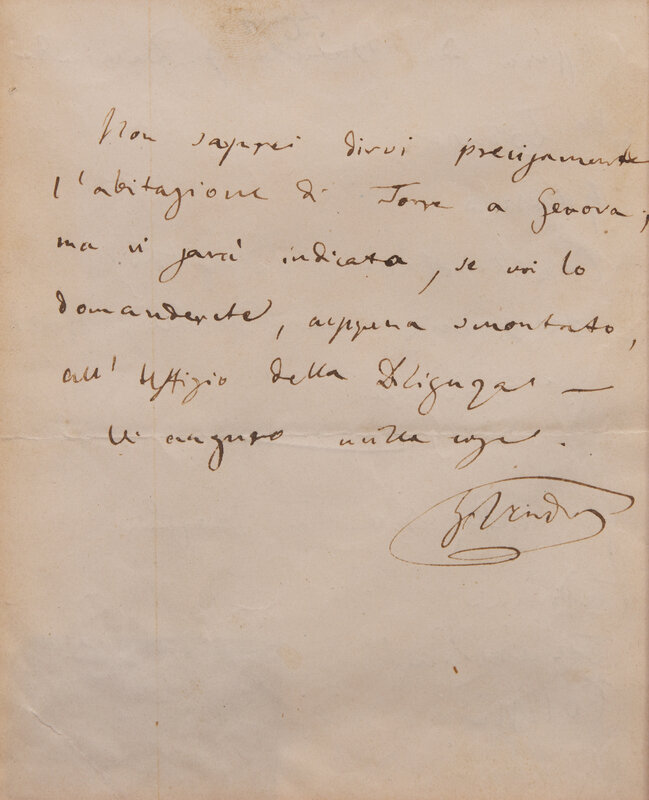 Non saprei dirvi precisamente
l'abitazione di Torre a Genova;
ma vi sarà indicata, se voi lo
domanderete, appena smontato,
all' Uffizio della Diligenza —
Vi auguro mille cose.
G. Verdi